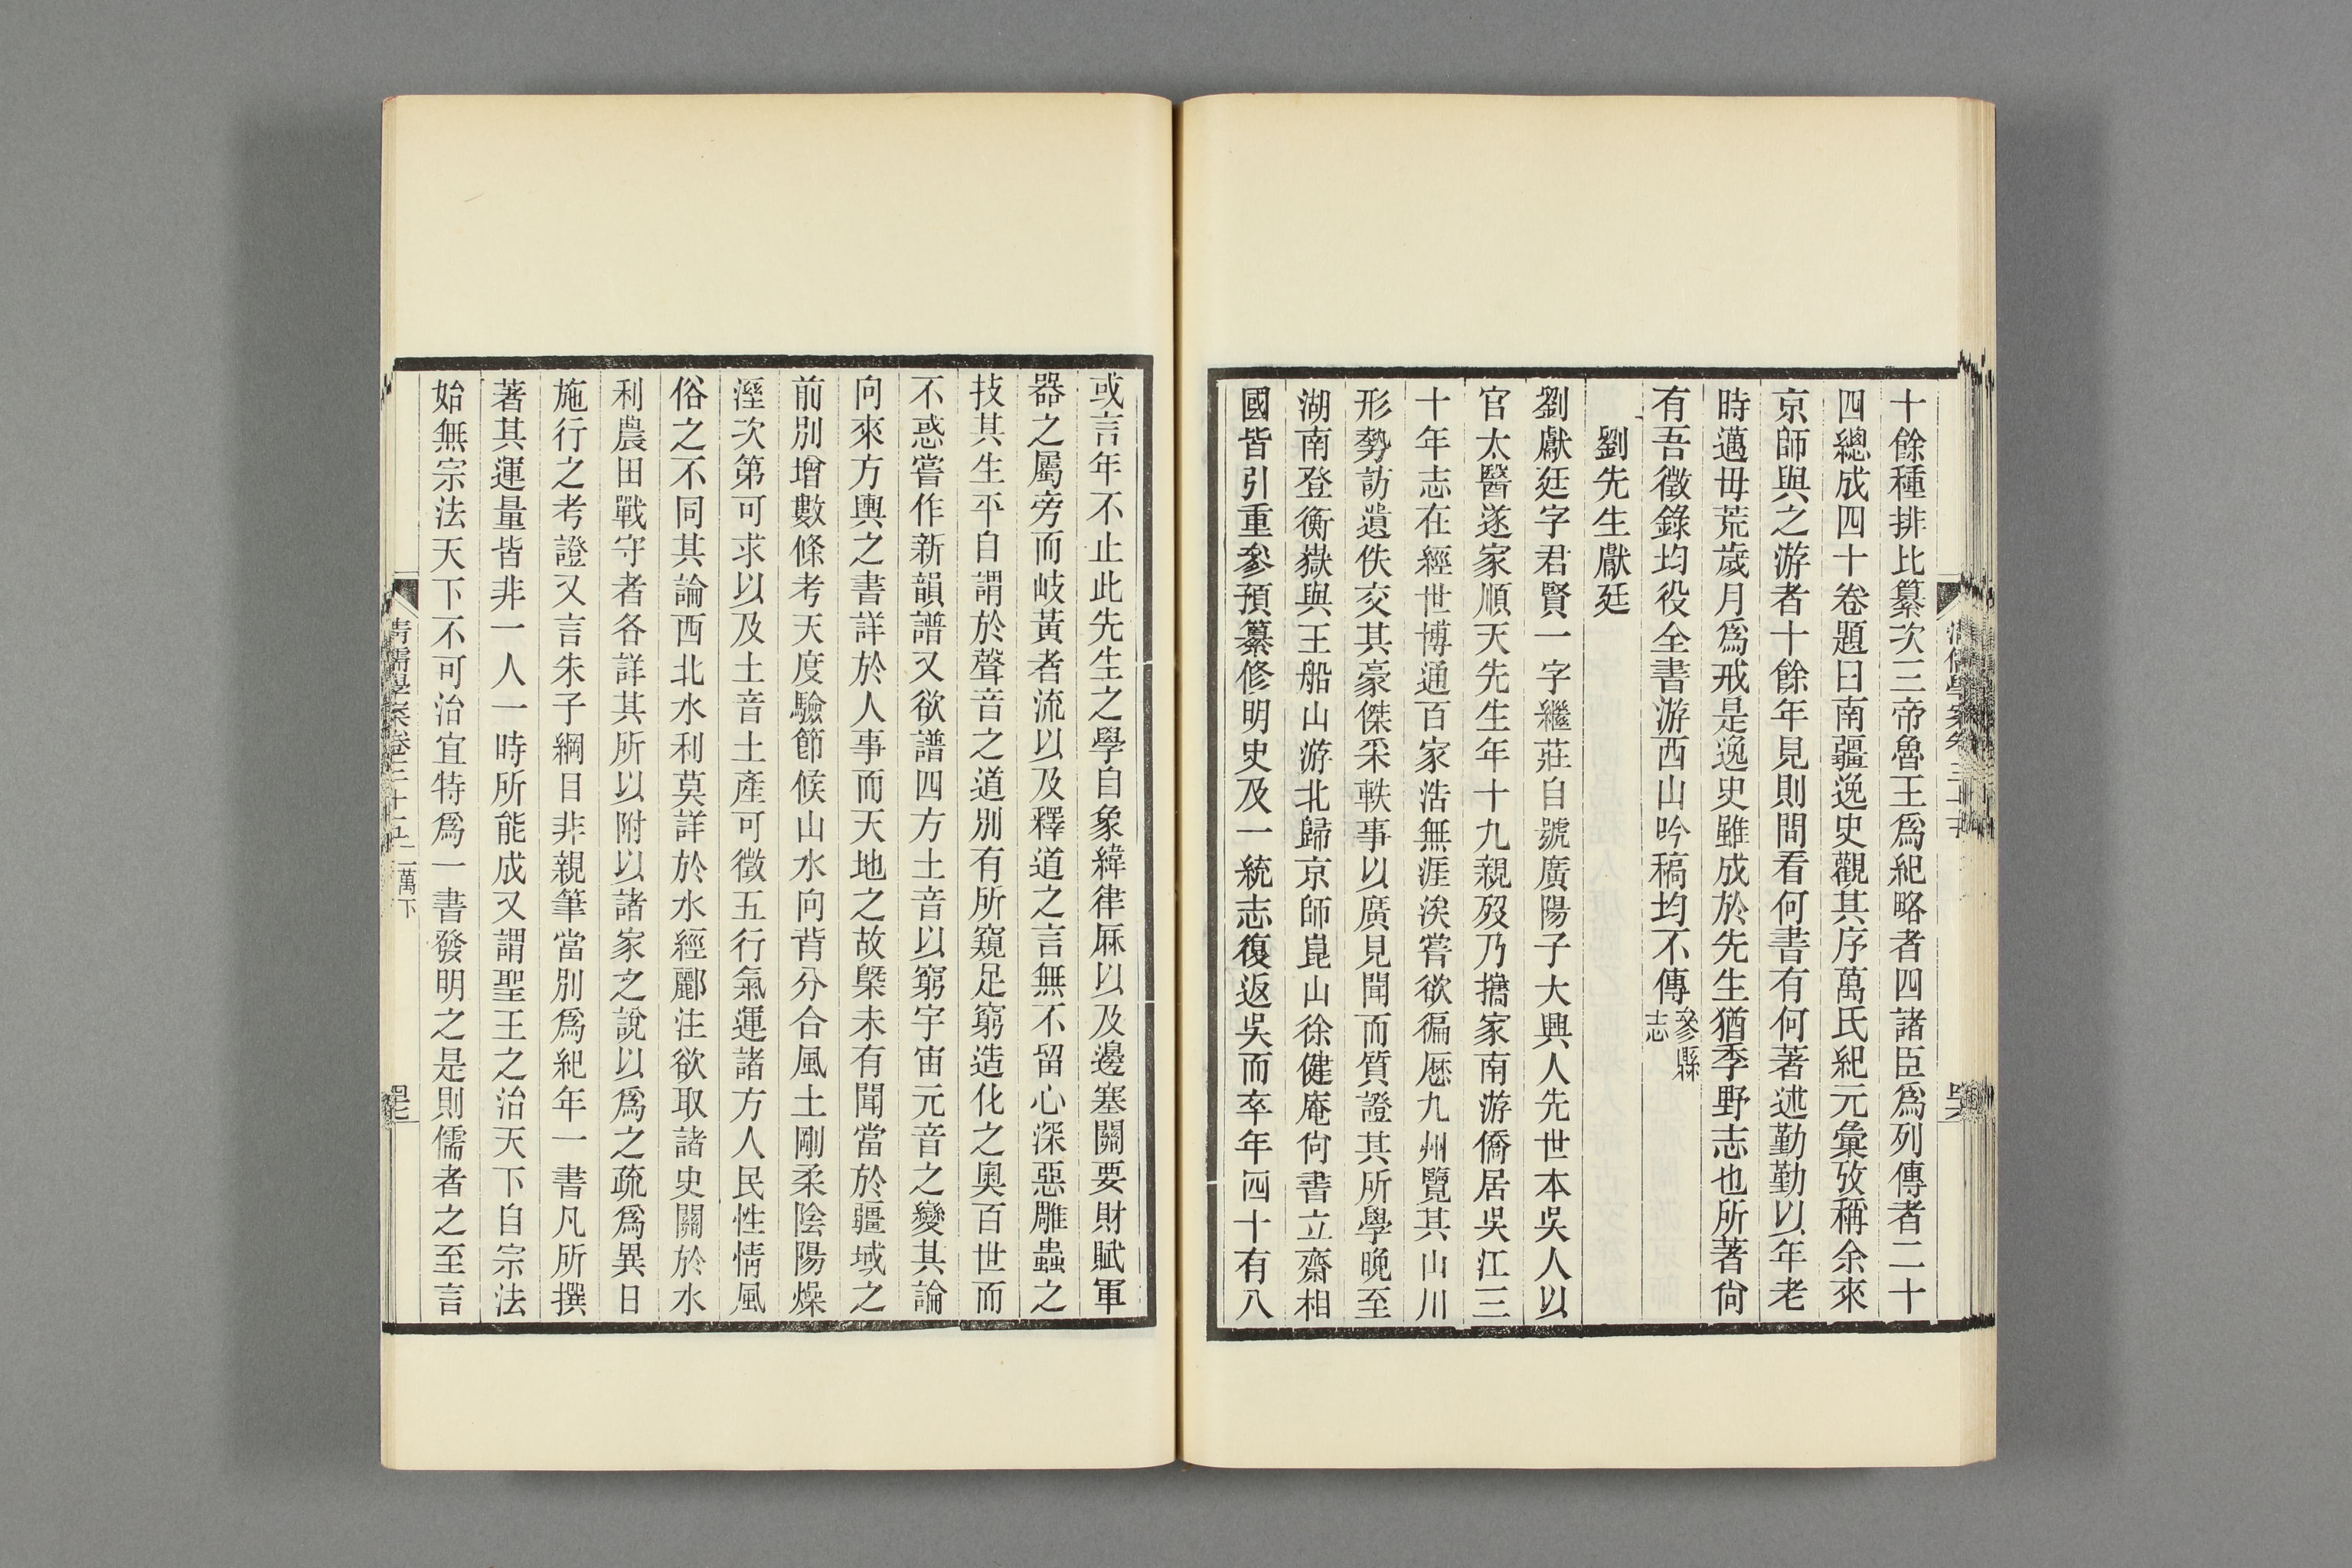 十餘種排比纂次三帝魯王爲紀略者四諸臣爲列傳者二十
四總成四十卷題曰南疆逸史觀其序萬氏紀元彙攷稱余來
京師與之游者十餘年見則問看何書有何著述勤勤以年老
時邁毋荒歲月爲戒是逸史雖成於先生猶季野志也所著尙
有吾徵錄均役全書游西山吟稿均不傳參縣志
劉先生獻廷
劉獻廷字君賢一字繼莊自號廣陽子大興人先世本吳人以
官太醫遂家順天先生年十九親歿乃攜家南游僑居吳江三
十年志在經世博通百家浩無涯涘嘗欲徧厯九州覽其山川
形勢訪遺佚交其豪傑采軼事以廣見聞而質證其所學晚至
湖南登衡嶽與王船山游北歸京師崑山徐健庵尙書立齋相
國皆引重參預纂修明史及一統志復返吳而卒年四十有八
或言年不止此先生之學自象緯律厤以及邊塞關要財賦軍
器之屬旁而岐黃者流以及釋道之言無不留心深惡雕蟲之
技其生平自謂於聲音之道別有所窺足窮造化之奧百世而
不惑嘗作新韻譜又欲譜四方土音以窮宇宙元音之變其論
向來方輿之書詳於人事而天地之故槩未有聞當於疆域之
前別增數條考天度驗節候山水向背分合風土剛柔陰陽燥
溼次第可求以及土音土產可徵五行氣運諸方人民性情風
俗之不同其論西北水利莫詳於水經酈注欲取諸史關於水
利農田戰守者各詳其所以附以諸家之說以爲之疏爲異日
施行之考證又言朱子綱目非親筆當別爲紀年一書凡所撰
著其運量皆非一人一時所能成又謂聖王之治天下自宗法
始無宗法天下不可治宜特爲一書發明之是則儒者之至言
清儒學案卷三十五 二萬下